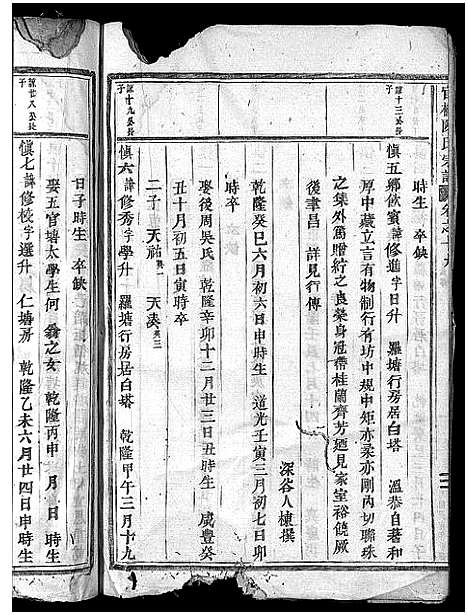 時生　卒缺
諒十三公長子
慎五鄉飲賓諱修進字日升　羅塘行房居白塔　溫恭自著和
厚中藏立言有物制行有坊中規中矩亦柔亦剛內切聯珠
之集外篤贈紵之良榮身冠帶桂蘭齊芳廼見家室裕饒厥
後聿昌　詳見行傳
深谷人棟撰
乾隆癸巳六月初六日申時生　道光壬寅三月初七日卯
時卒
娶後周吳氏　乾隆辛卯十二月廿三日丑時生　咸豐癸
丑十月初五日寅時卒
二子　天祐　天漋
諒十九公長子
慎六諱修秀字學升　羅塘行房居白塔　乾隆甲午三月十九
日子時生　卒缺
娶五官塘太學生何　翁之女　乾隆丙申　月　日　時生
諒廿八公長子
慎七諱修校字選升　仁塘房　乾隆乙未六月廿四日申時生